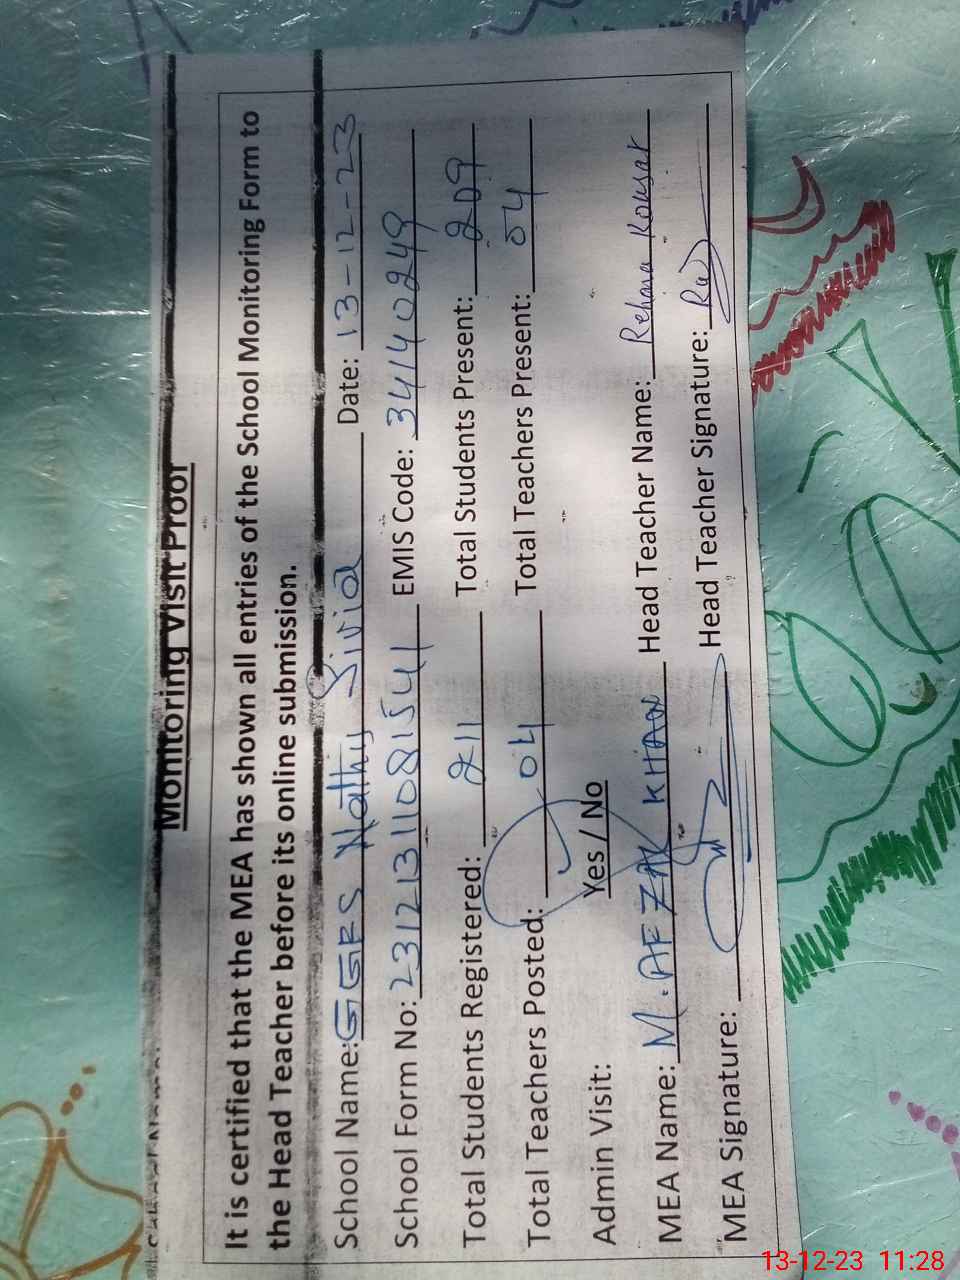 Monitoring Visit Proof
It is certified that the MEA has shown all entries of the School Monitoring Form to
the Head Teacher before its online submission.
School Name: GGPS Nathy Sivia Date: 13-12-23
School Form No: 23121311081541 EMIS Code: 34140249
Total Students Registered: 211 Total Students Present: 209
Total Teachers Posted: 04 Total Teachers Present: 04
Admin Visit: Yes / No
MEA Name: M. AFZAL KHAN Head Teacher Name: Rehana Kousar
MEA Signature: Head Teacher Signature:
13-12-23 11:28